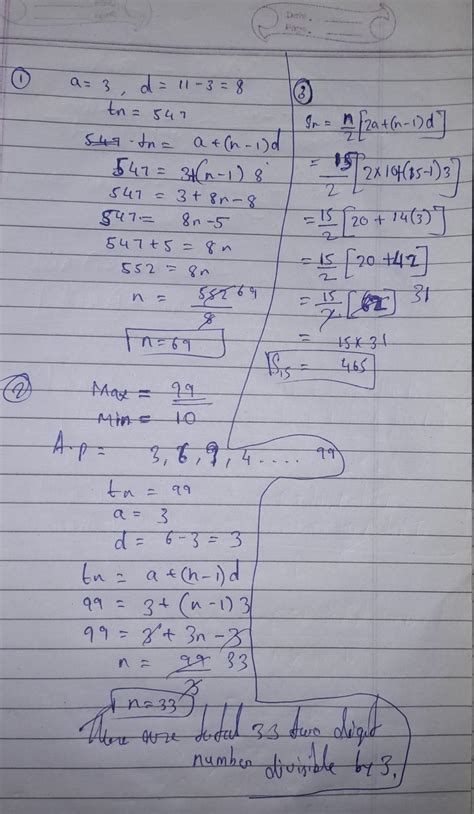 ①
a = 3, d = 11 - 3 = 8
tn = 547
tn = a + (n-1)d
547 = 3 + (n-1) 8
547 = 3 + 8n - 8
547 = 8n - 5
547 + 5 = 8n
552 = 8n
n = 552 69
8
n = 69
③
Sn = n/2 [2a + (n-1)d]
= 15/2 [2×10+(15-1)3]
= 15/2 [20 + 14(3)]
= 15/2 [20 + 42]
= 15/2 [62] 31
= 15 × 31
S15 = 465
②
Max = 99
Min = 10
A.p = 3, 6, 9, 4 .... 99
tn = 99
a = 3
d = 6 - 3 = 3
tn = a + (n-1)d
99 = 3 + (n-1) 3
99 = 3 + 3n - 3
n = 99 33
3
n = 33
There are total 33 two digit
number divisible by 3.